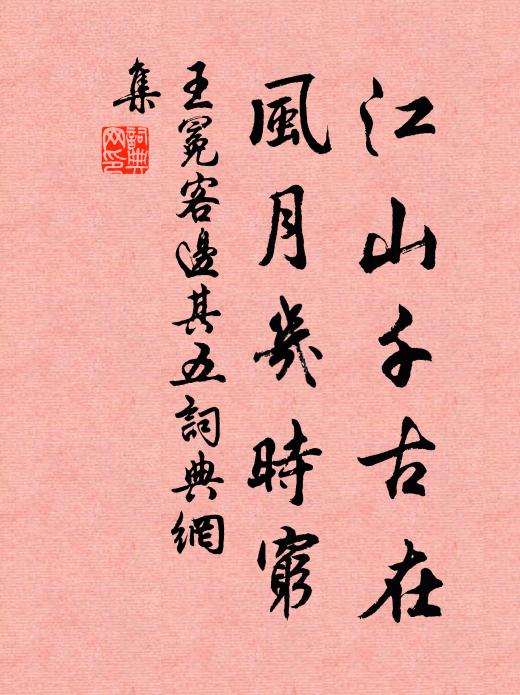 江山千古在
風月幾時窮
王冕客邊其五詞典網
集
詞典
网印